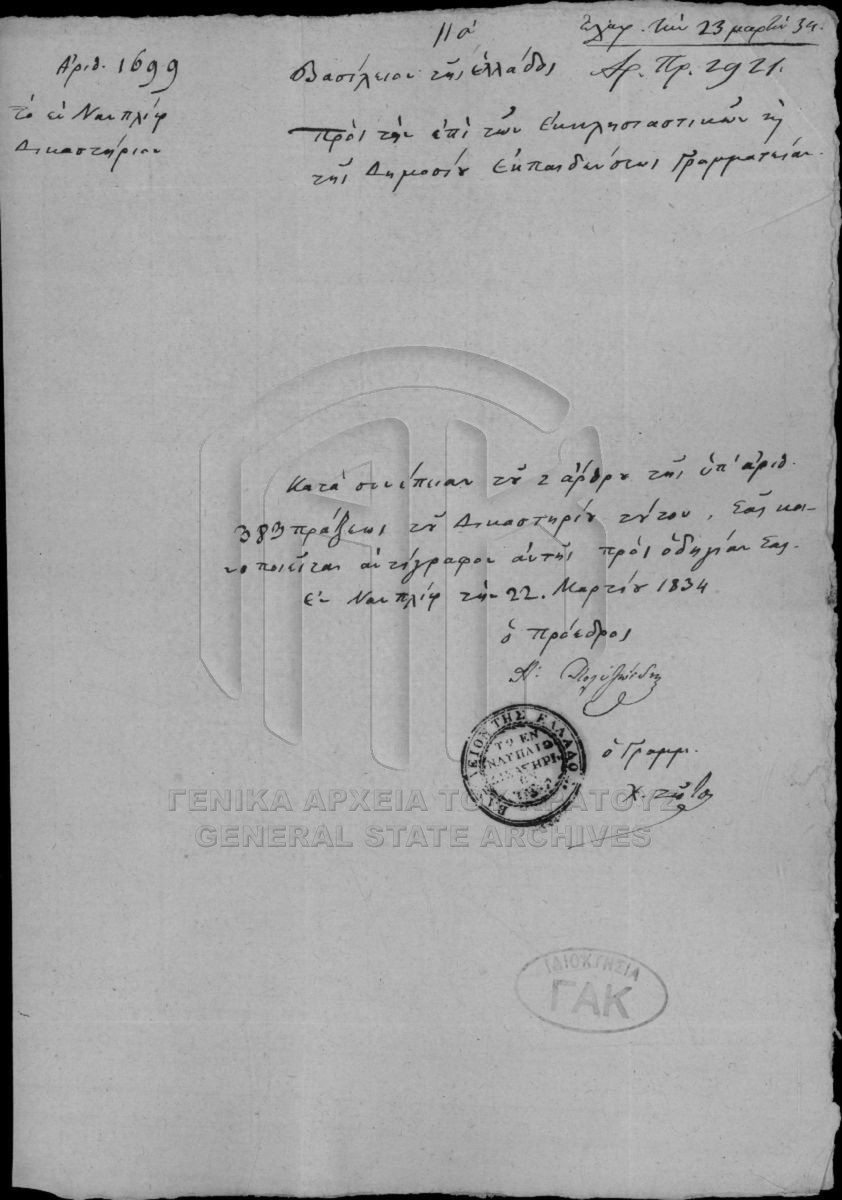 11α
Ἐλήφ. τὴν 23 μαρτίου 34.
Ἀριθ. 1699
Βασίλειον τῆς Ἑλλάδος
Ἀρ. Πρ. 2921.
Τὸ ἐν Ναυπλίῳ
Δικαστήριον
Πρὸς τὴν ἐπὶ τῶν Ἐκκλησιαστικῶν κỳ
τῆς Δημοσίου Ἐκπαιδεύσεως Γραμματείαν.
Κατὰ συνέπειαν τοῦ 2 ἄρθρου τῆς ὑπ' ἀριθ.
383 πράξεως τοῦ Δικαστηρίου τούτου, Σᾶς κοι-
νοποιεῖται ἀντίγραφον αὐτῆς πρὸς ὁδηγίαν Σας.
Ἐν Ναυπλίῳ τὴν 22. Μαρτίου 1834
ὁ πρόεδρος
Ἀ: Πολυζωίδης
ΒΑΣΙΛΕΙΟΝ ΤΗΣ ΕΛΛΑΔΟΣ
ΤΟ ΕΝ
ΝΑΥΠΛΙΩ
ΔΙΚΑΣΤΗΡΙ
ΟΝ
ὁ Γραμμ.
ΓΕΝΙΚΑ ΑΡΧΕΙΑ ΤΟΥ ΚΡΑΤΟΥΣ
GENERAL STATE ARCHIVES
ΙΔΙΟΚΤΗΣΙΑ
ΓΑΚ